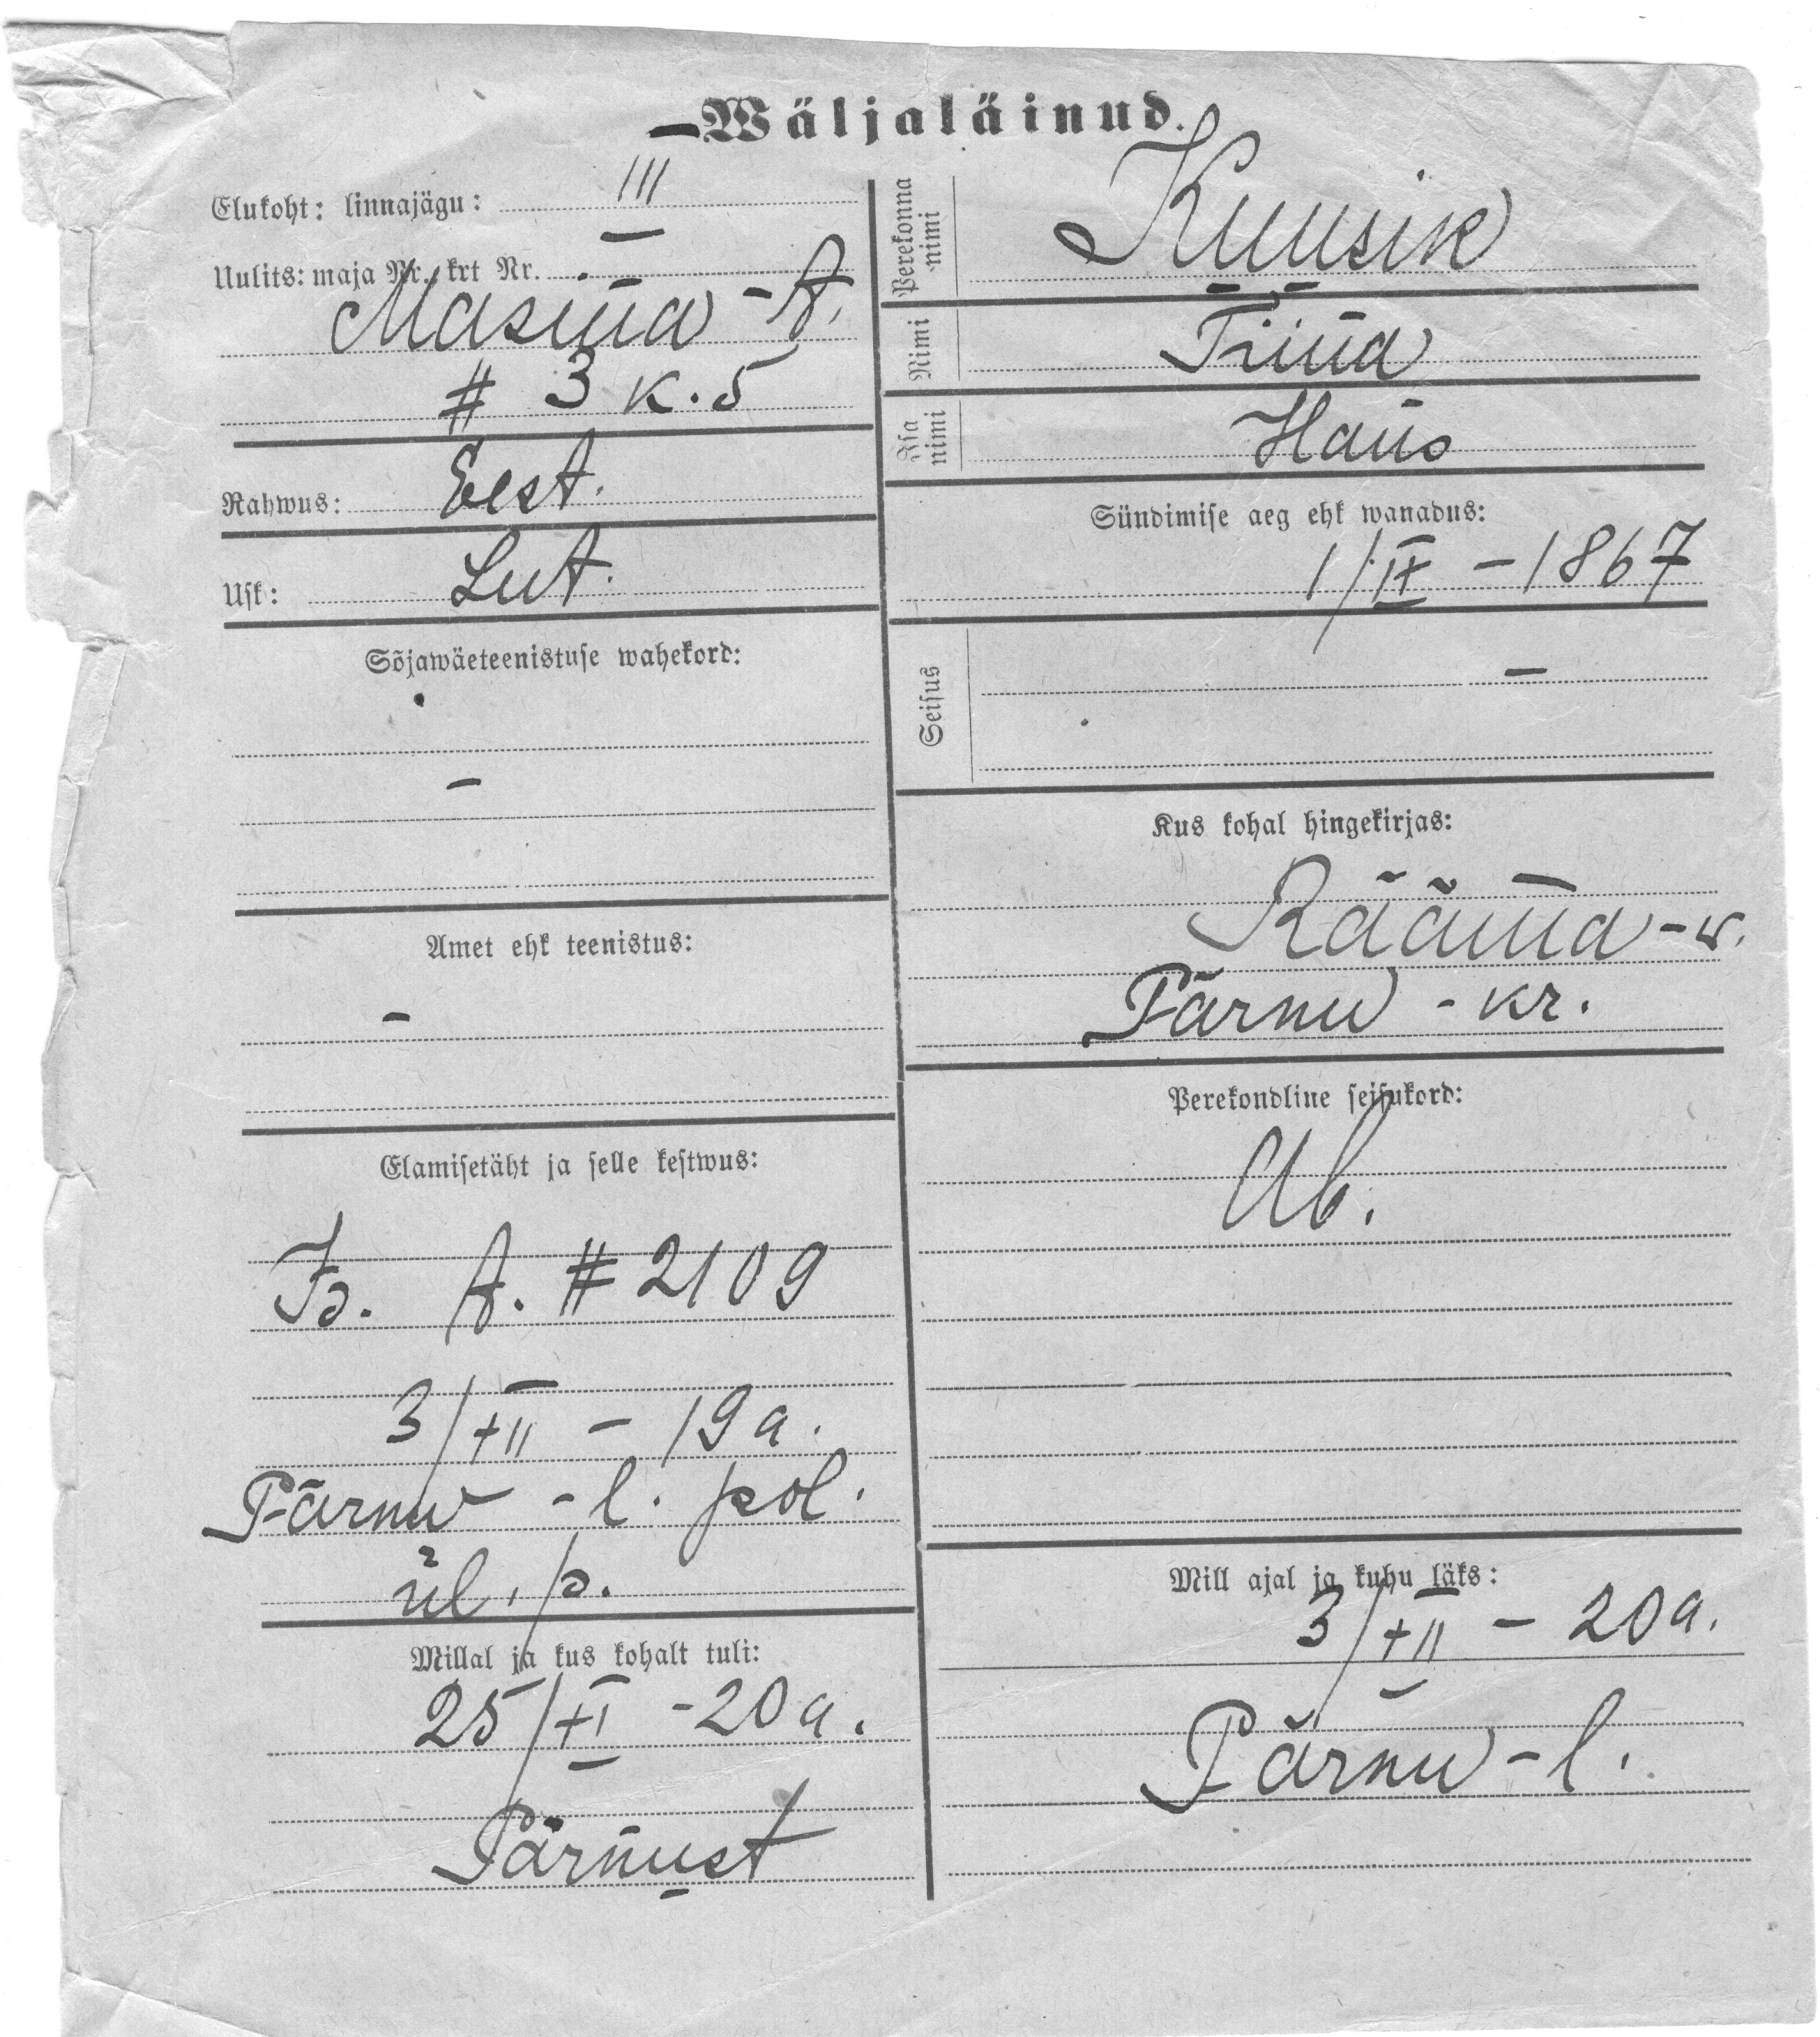 Wäljaläinud.
Elukoht: linnajägu: III
Uulits: maja Nr. krt Nr.
Masina-t.
# 3 k. 5
Rahwus: Eest.
Usk: Lut.
Sõjawäeteenistuse wahekord:
-
Amet ehk teenistus:
-
Elamisetäht ja selle kestwus:
Is. t. # 2109
3/XII - 19 a.
Pärnu - l. pol.
ül. p.
Millal ja kus kohalt tuli:
25/XI - 20 a.
Pärnust
Perekonna nimi Kuusik
Nimi Tiina
Isa nimi Hans
Sündimise aeg ehk wanadus:
1/IX - 1867
Seisus -
Kus kohal hingekirjas:
Rääma - w.
Pärnu - kr.
Perekondline seisukord:
Ab.
Mill ajal ja kuhu läks:
3/XII - 20 a.
Pärnu - l.